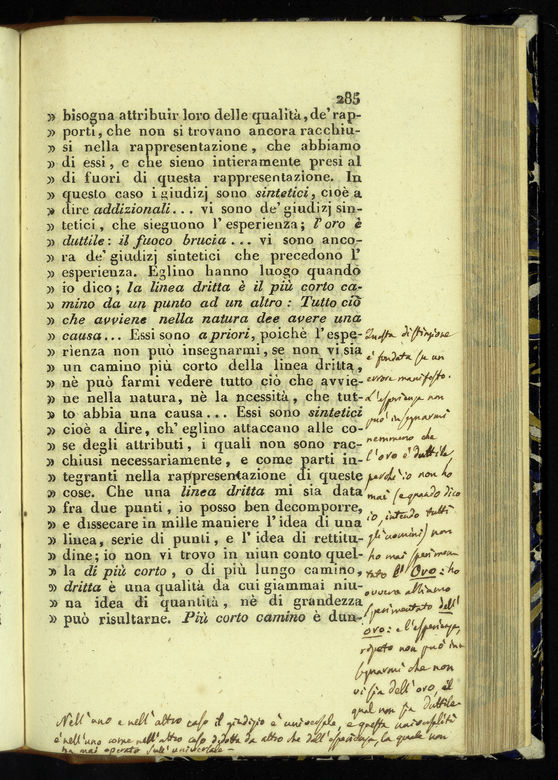 285
» bisogna attribuir loro delle qualità, de' rap-
» porti, che non si trovano ancora racchiu-
» si nella rappresentazione, che abbiamo
» di essi, e che sieno intieramente presi al
» di fuori di questa rappresentazione. In
» questo caso i giudizj sono sintetici, cioè a
» dire addizionali... vi sono de' giudizj sin-
» tetici, che sieguono l'esperienza; l'oro è
» duttile: il fuoco brucia... vi sono anco-
» ra de' giudizj sintetici che precedono l'
» esperienza. Eglino hanno luogo quando
» io dico; la linea dritta è il più corto ca-
» mino da un punto ad un altro: Tutto ciò
» che avviene nella natura dee avere una
» causa... Essi sono a priori, poichè l'espe-
» rienza non può insegnarmi, se non vi sia
» un camino più corto della linea dritta,
» nè può farmi vedere tutto ciò che avvie-
» ne nella natura, nè la ncessità, che tut-
» to abbia una causa... Essi sono sintetici
» cioè a dire, ch'eglino attaccano alle co-
» se degli attributi, i quali non sono rac-
» chiusi necessariamente, e come parti in-
» tegranti nella rappresentazione di queste
» cose. Che una linea dritta mi sia data
» fra due punti, io posso ben decomporre,
» e dissecare in mille maniere l'idea di una
» linea, serie di punti, e l'idea di rettitu-
» dine; io non vi trovo in niun conto quel-
» la di più corto, o di più lungo camino,
» dritta è una qualità da cui giammai niu-
» na idea di quantità, nè di grandezza
» può risultarne. Più corto camino è dun-
Questa distinzione
è fondata su un
errore manifesto.
L'esperienza non
può insegnarmi
nemmeno che
l'oro è duttile,
perchè io non ho
mai (e quando dico
io, intendo tutti
gli uomini) non
ho mai sperimen-
tato l'Oro: ho
ovvero abbiamo
sperimentato dell'
oro: e l'esperienza,
ripeto non può in
segnarmi che non
vi sia dell'oro, il
qual non sia duttile.
Nell'uno e nell'altro caso il giudizio è universale, e questa universalità
è nell'uno come nell'altro caso dedotta da altro che dall'esperienza, la quale non
ha mai operato sull'universale-